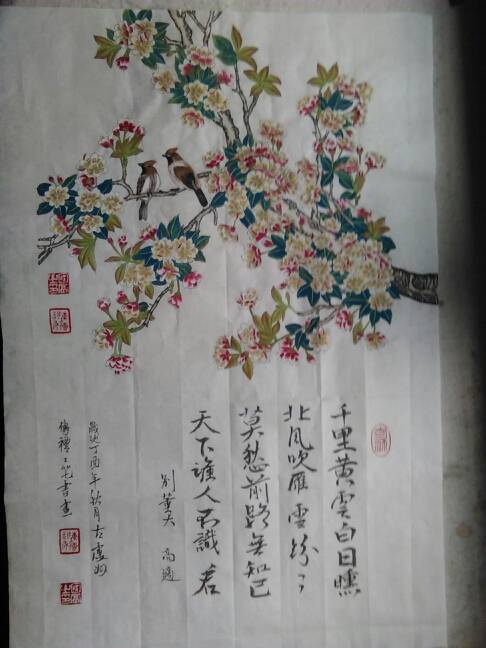 千里黄雲白日曛
北風吹雁雪紛々
莫愁前路無知己
天下誰人不識君
别董大 高適
歲次丁酉年秋月古
書畫